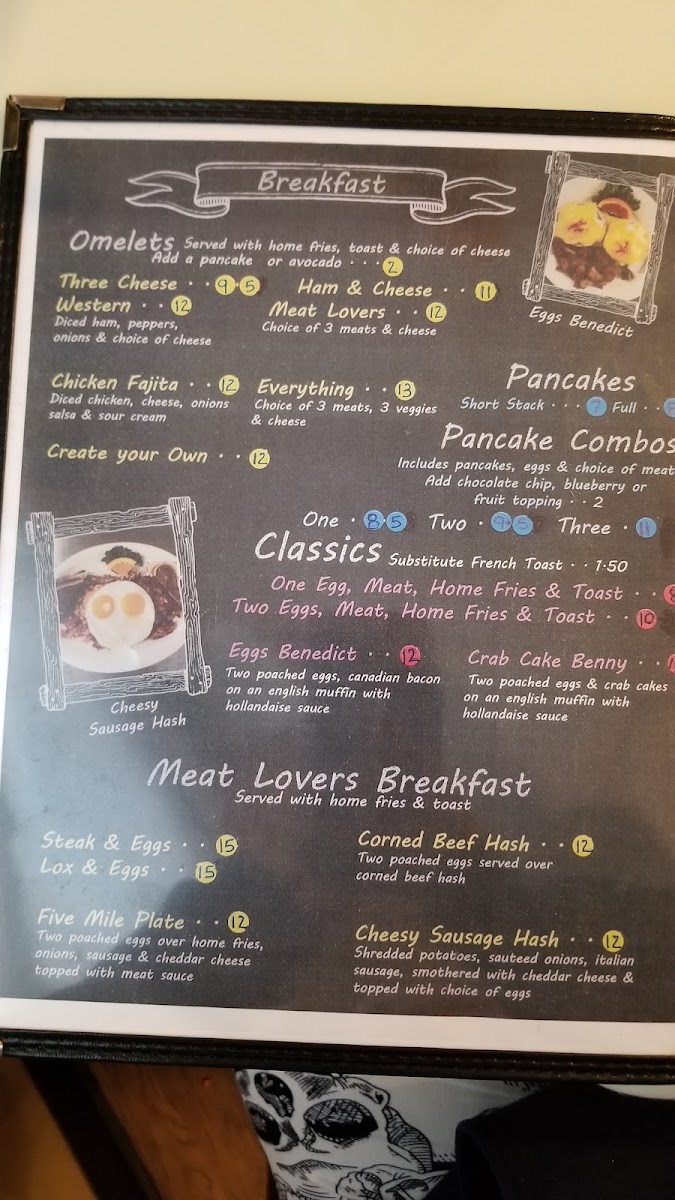 Breakfast
Omelets Served with home fries, toast & choice of cheese
Add a pancake or avocado · · · 2
Three Cheese · · 9·5
Ham & Cheese · · 11
Western · · 12
Diced ham, peppers,
onions & choice of cheese
Meat Lovers · · 12
Choice of 3 meats & cheese
Eggs Benedict
Chicken Fajita · · 12
Diced chicken, cheese, onions
salsa & sour cream
Everything · · 13
Choice of 3 meats, 3 veggies
& cheese
Create your Own · · 12
Pancakes
Short Stack · · · 7 Full · ·
Pancake Combos
Includes pancakes, eggs & choice of meat
Add chocolate chip, blueberry or
fruit topping · · 2
One · 8·5 Two · 9·5 Three · 11
Classics Substitute French Toast · · 1·50
One Egg, Meat, Home Fries & Toast · ·
Two Eggs, Meat, Home Fries & Toast · · 10
Eggs Benedict · · 12
Two poached eggs, canadian bacon
on an english muffin with
hollandaise sauce
Crab Cake Benny · ·
Two poached eggs & crab cakes
on an english muffin with
hollandaise sauce
Cheesy
Sausage Hash
Meat Lovers Breakfast
Served with home fries & toast
Steak & Eggs · · 15
Lox & Eggs · · 15
Corned Beef Hash · · 12
Two poached eggs served over
corned beef hash
Five Mile Plate · · 12
Two poached eggs over home fries,
onions, sausage & cheddar cheese
topped with meat sauce
Cheesy Sausage Hash · · 12
Shredded potatoes, sauteed onions, italian
sausage, smothered with cheddar cheese &
topped with choice of eggs